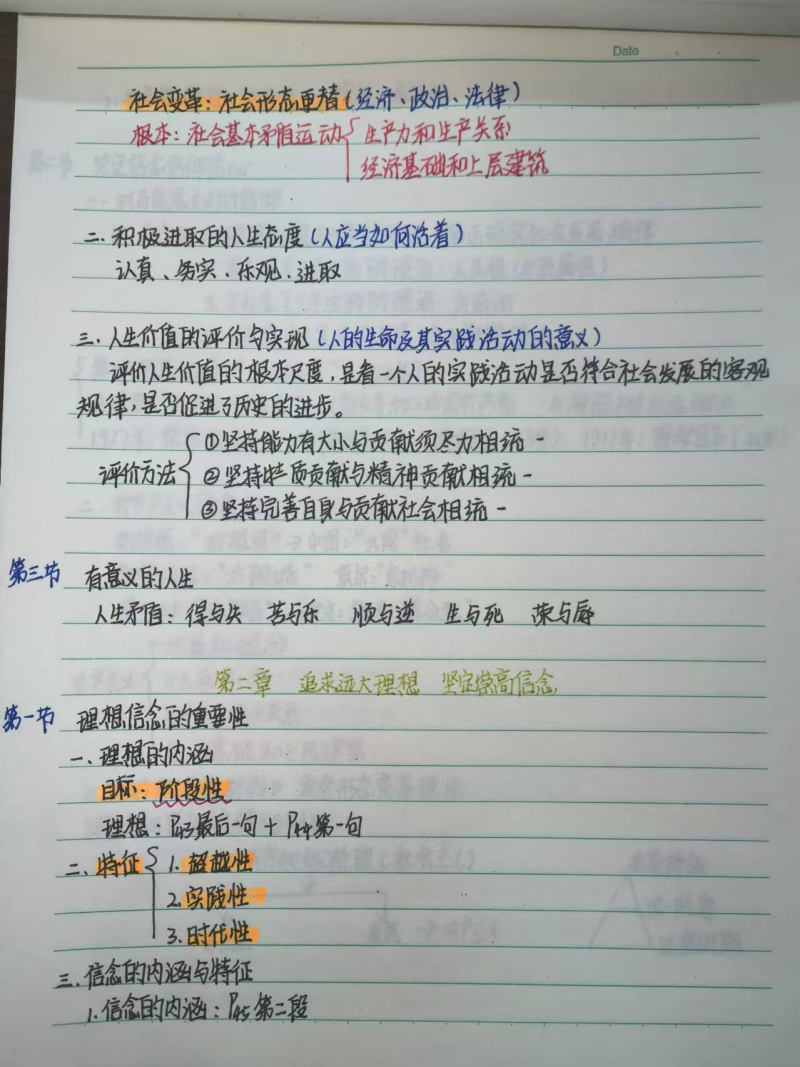 Date
社会变革:社会形态更替(经济、政治、法律)
根本:社会基本矛盾运动{生产力和生产关系
经济基础和上层建筑
二.积极进取的人生态度(人应当如何活着)
认真、务实、乐观、进取
三.人生价值的评价与实现(人的生命及其实践活动的意义)
评价人生价值的根本尺度,是看一个人的实践活动是否符合社会发展的客观
规律,是否促进了历史的进步。
评价方法{①坚持能力有大小与贡献须尽力相统一
②坚持物质贡献与精神贡献相统一
③坚持完善自身与贡献社会相统一
第三节 有意义的人生
人生矛盾:得与失 苦与乐 顺与逆 生与死 荣与辱
第二章 追求远大理想 坚定崇高信念
第一节 理想信念的重要性
一.理想的内涵
目标:阶段性
理想:P43最后一句+P44第一句
二.特征{1.超越性
2.实践性
3.时代性
三.信念的内涵与特征
1.信念的内涵:P45第二段